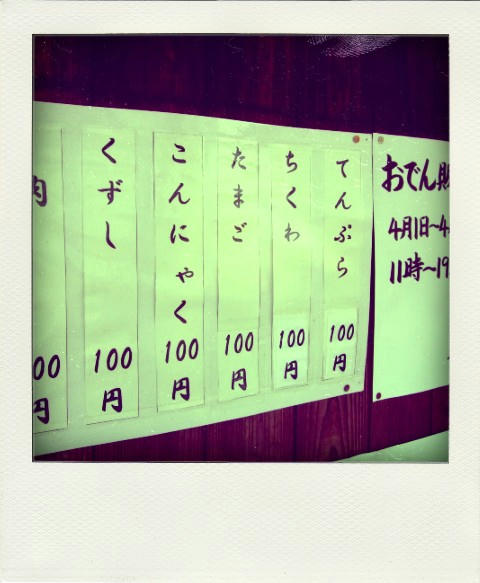 おでん販
4月1日〜4
11時〜19
てんぷら
100
円
ちくわ
100
円
たまご
100
円
こんにゃく
100
円
くずし
100
円
肉
00
円